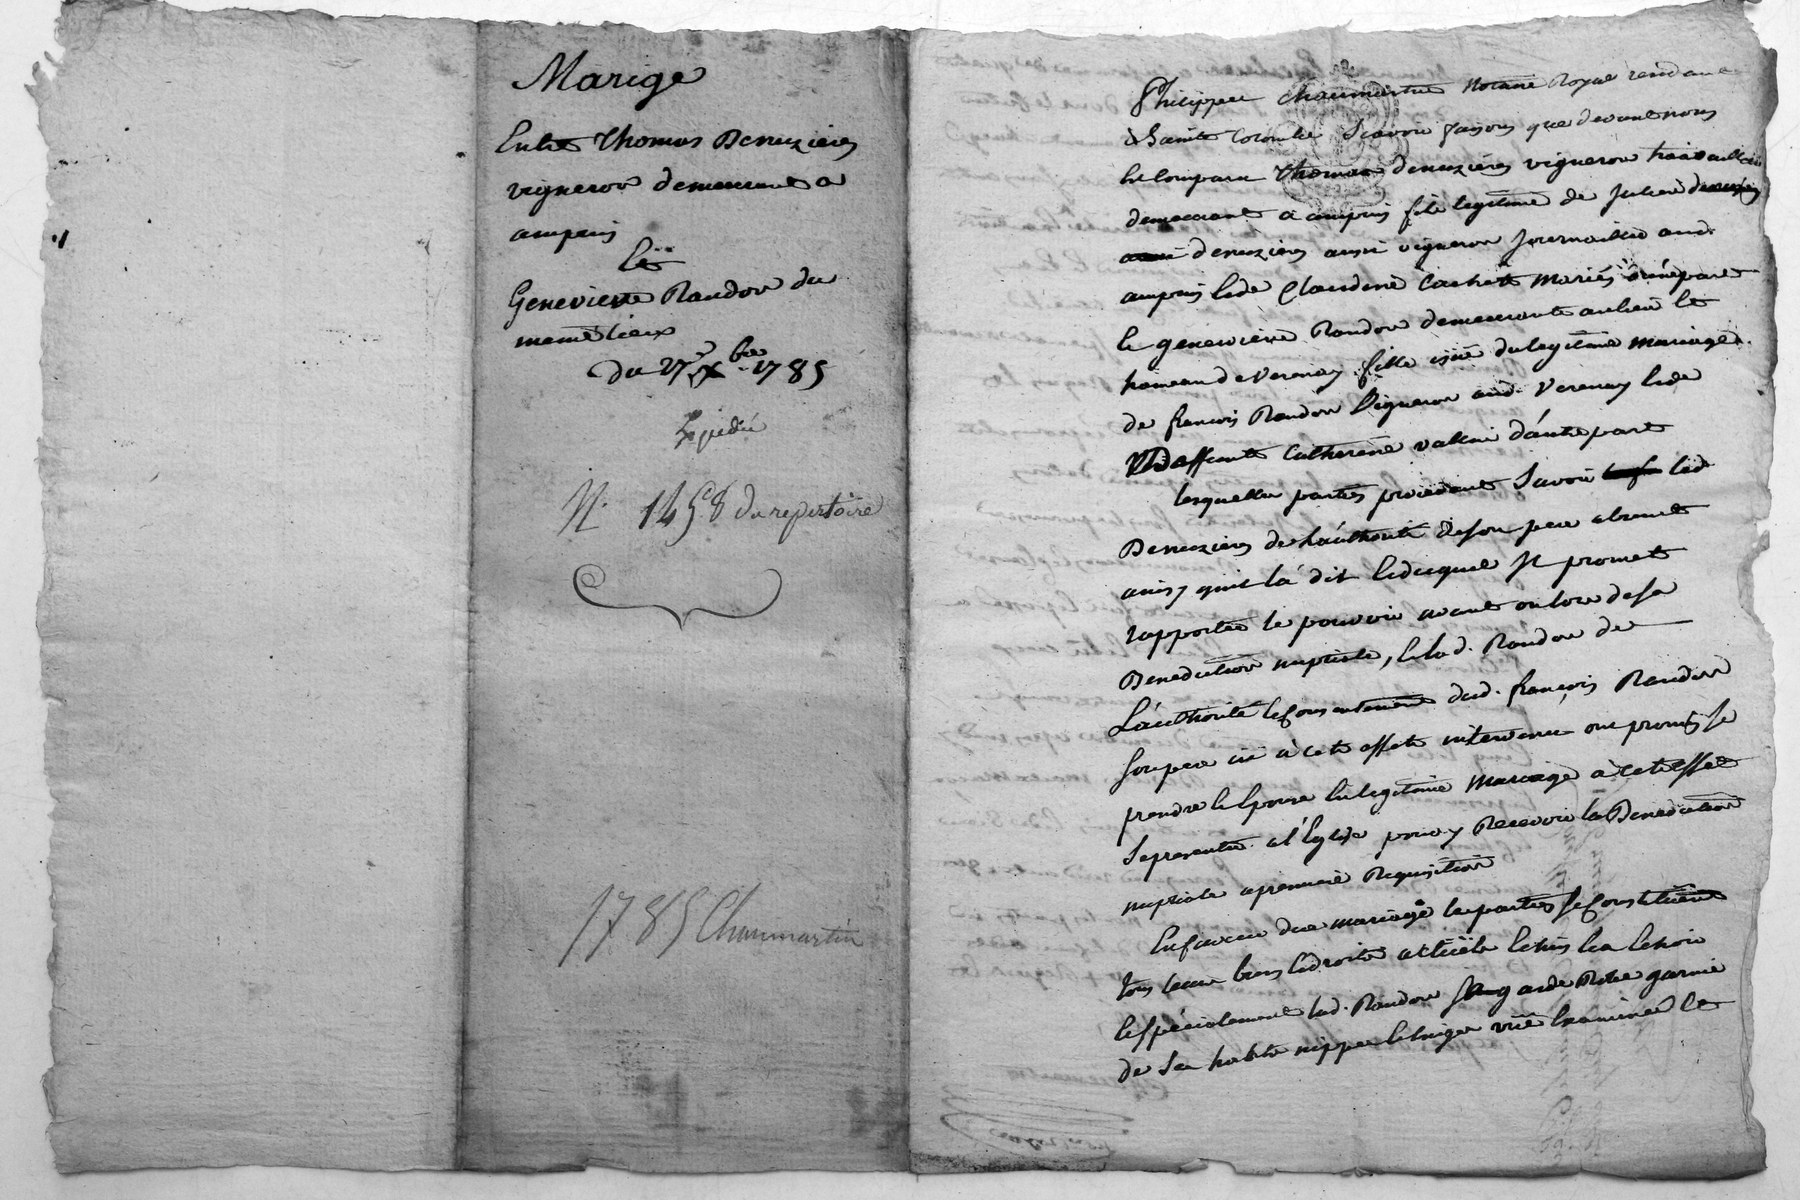 Marige
Entre Thomas Deruzieres
vigneron demeurant a
ampuis
Et
Genevieve Randon du
meme lieux
du 27 Xbre 1785
Expedié
N. 1458 du repertoire
1785 Chaumartin
Philippe Chaumartin Notaire Royal
Sainte Colombe Scavoir faisons que devant nous
Est comparu Thomas deruzieres vigneron travailleur
demeurant a ampuis fils legitime de Julien
deruzieres aussi vigneron Journaillier aud.
ampuis & de Claudine Cachet Mariés d'une part
Et genevieve Randon demeurante au lieu &
hameau de Verenay fille issue du legitime mariage
de francois Randon Vigneron aud. Verenay & de
deffunte Catherine d'autre part
lesquelles parties procedant Savoir led
Deruzieres de l'authorité de son pere absent
ainsy qu'il l'a dit & duquel Il promet
rapporter le pouvoir avant ou lors de la
Benediction nuptiale, & lad. Randon de
L'authorité & consentement dud. françois Randon
Son pere icy à cet effet intervenu ont promis Se
prendre & Epouser En legitime Mariage à cet effet
Se presenter a l'Eglise pour y Recevoir la Benediction
nuptiale a premiere Requisition
En faveur du mariage les parties Se Constituent
tous leurs biens & droits
& spécialement lad. Randon garde Robe garnie
de Ses habits nippes & linges vuë Examinée &